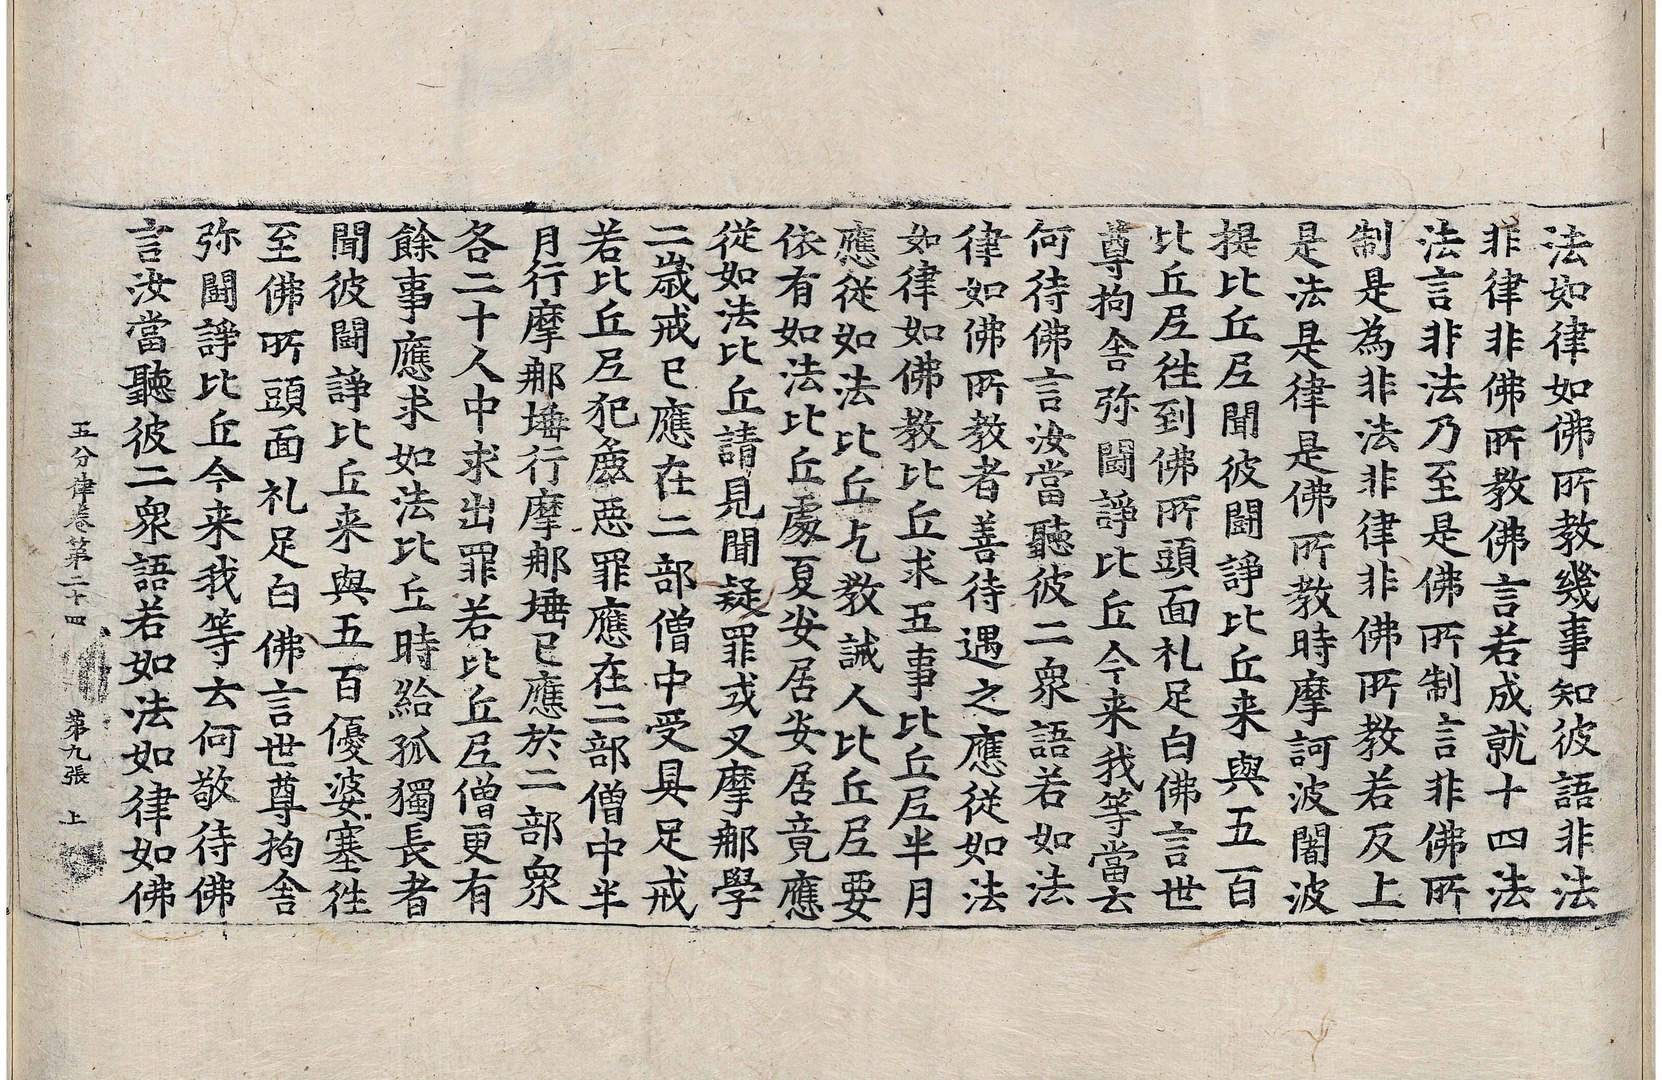 法如律如佛所教幾事知彼語非法
非律非佛所教佛言若成就十四法
法言非法乃至是佛所制言非佛所
制是為非法非律非佛所教若反上
是法是律是佛所教時摩訶波闍波
提比丘尼聞彼鬪諍比丘来與五百
比丘尼徃到佛所頭面礼足白佛言世
尊拘舎弥鬪諍比丘今来我等當云
何待佛言汝當聽彼二衆語若如法
律如佛所教者善待遇之應從如法
如律如佛教比丘求五事比丘尼半月
應從如法比丘乞教誡人比丘尼要
依有如法比丘處夏安居安居竟應
從如法比丘請見聞疑罪或叉摩那學
二歲戒已應在二部僧中受具足戒
若比丘尼犯麁惡罪應在二部僧中半
月行摩那埵行摩那埵已應於二部衆
各二十人中求出罪若比丘尼僧更有
餘事應求如法比丘時給孤獨長者
聞彼鬪諍比丘来與五百優婆塞徃
至佛所頭面礼足白佛言世尊拘舎
弥鬪諍比丘今来我等云何敬待佛
言汝當聽彼二衆語若如法如律如佛
五分律卷第二十四 第九張 上